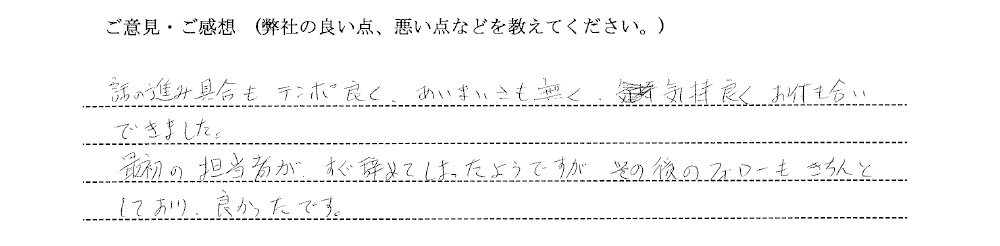 ご意見・ご感想　(弊社の良い点、悪い点などを教えてください。)
話の進み具合も テンポ良く、あいまいさも無く、気持良く お付き合い
できました。
最初の担当者が、すぐ辞めてしまったようですが、その後のフォローもきちんと
しており、良かったです。